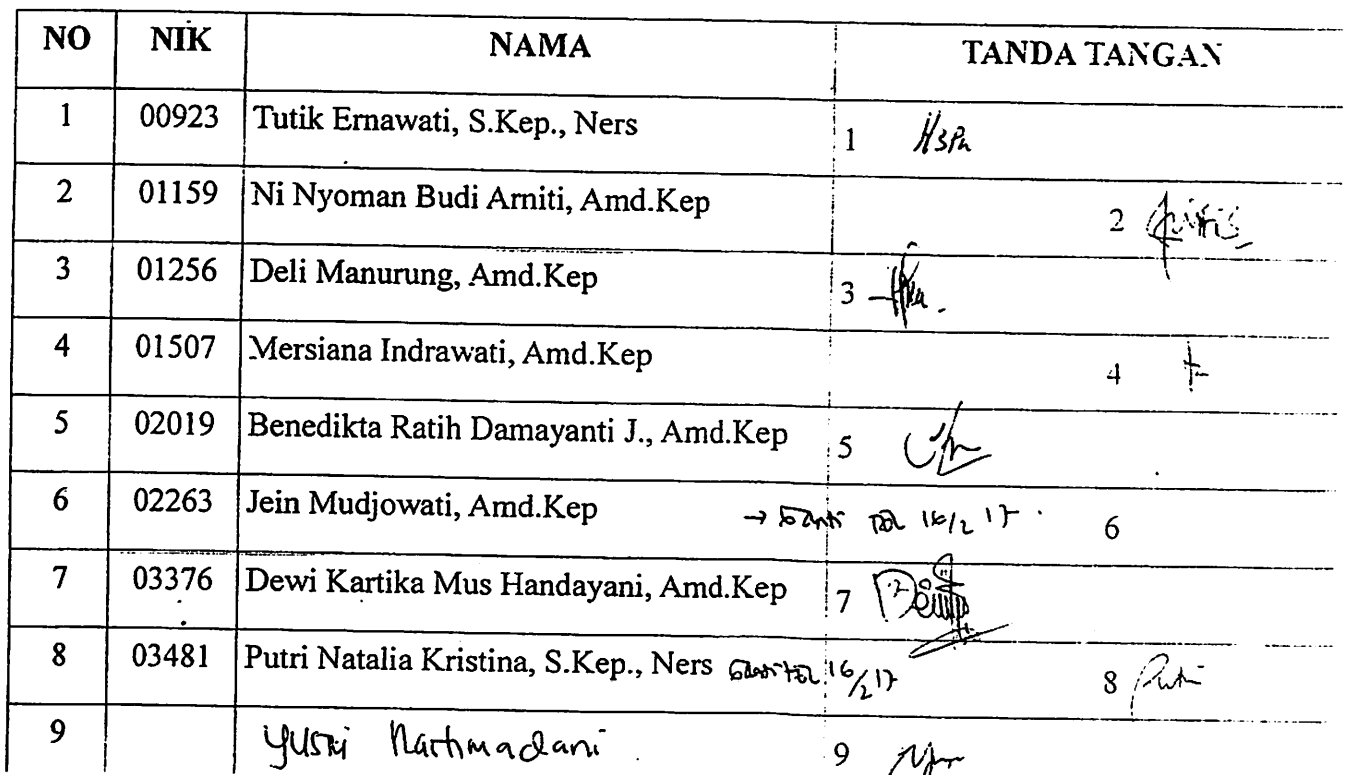 NO NIK NAMA TANDA TANGAN
1 00923 Tutik Ernawati, S.Kep., Ners 1
2 01159 Ni Nyoman Budi Arniti, Amd.Kep 2
3 01256 Deli Manurung, Amd.Kep 3
4 01507 Mersiana Indrawati, Amd.Kep 4
5 02019 Benedikta Ratih Damayanti J., Amd.Kep 5
6 02263 Jein Mudjowati, Amd.Kep → 16/2 17 6
7 03376 Dewi Kartika Mus Handayani, Amd.Kep 7
8 03481 Putri Natalia Kristina, S.Kep., Ners 16/2 17 8 Putri
9 9